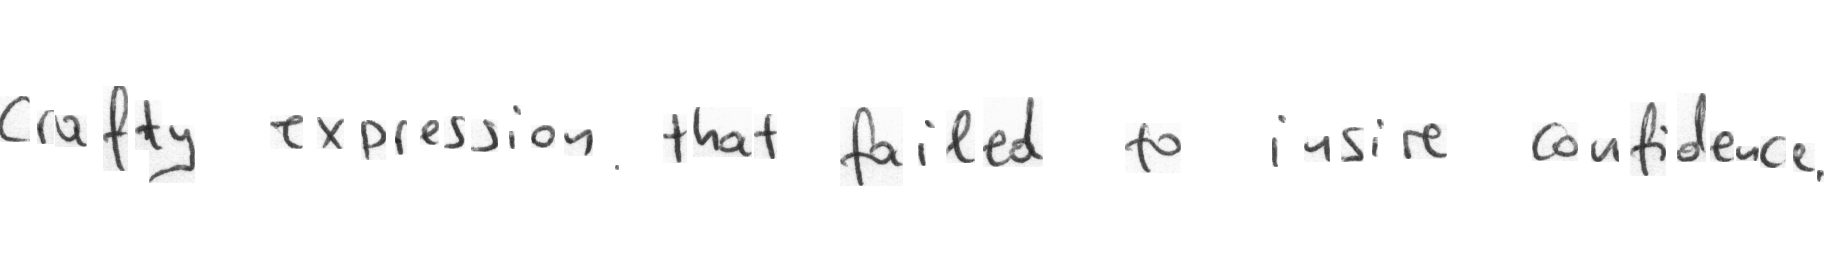 Crafty expression. that failed to insire confidence,